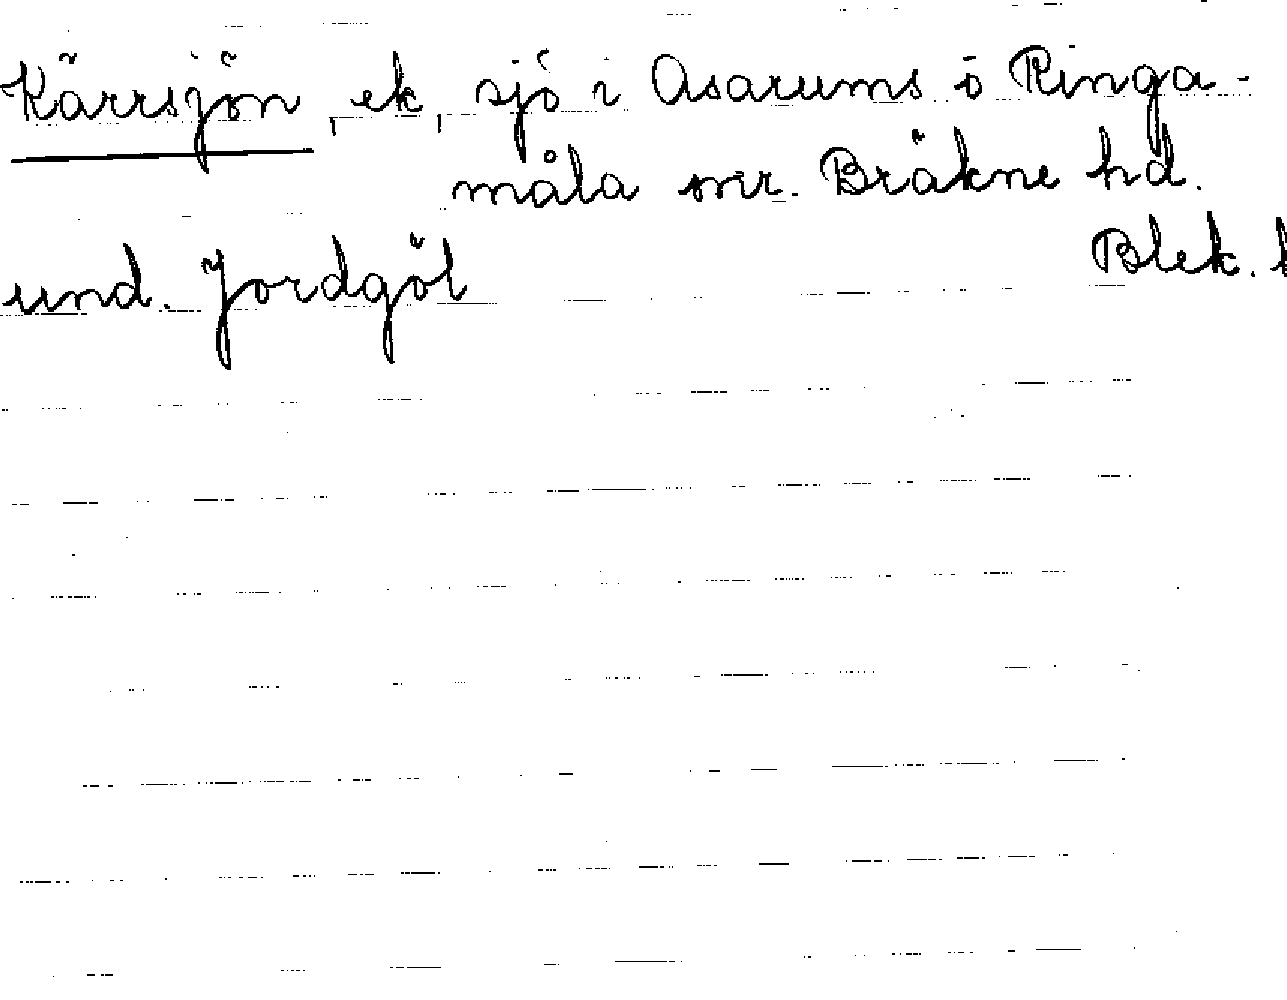 Kärrsjön, ek, sjö i Asarums o Ringa-
måla snr. Bräkne hd.
Blek. l
und. Jordgöl